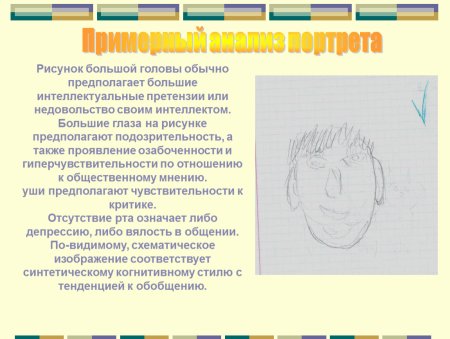 Примерный анализ портрета
Рисунок большой головы обычно
предполагает большие
интеллектуальные претензии или
недовольство своим интеллектом.
Большие глаза на рисунке
предполагают подозрительность, а
также проявление озабоченности и
гиперчувствительности по отношению
к общественному мнению.
уши предполагают чувствительности к
критике.
Отсутствие рта означает либо
депрессию, либо вялость в общении.
По-видимому, схематическое
изображение соответствует
синтетическому когнитивному стилю с
тенденцией к обобщению.